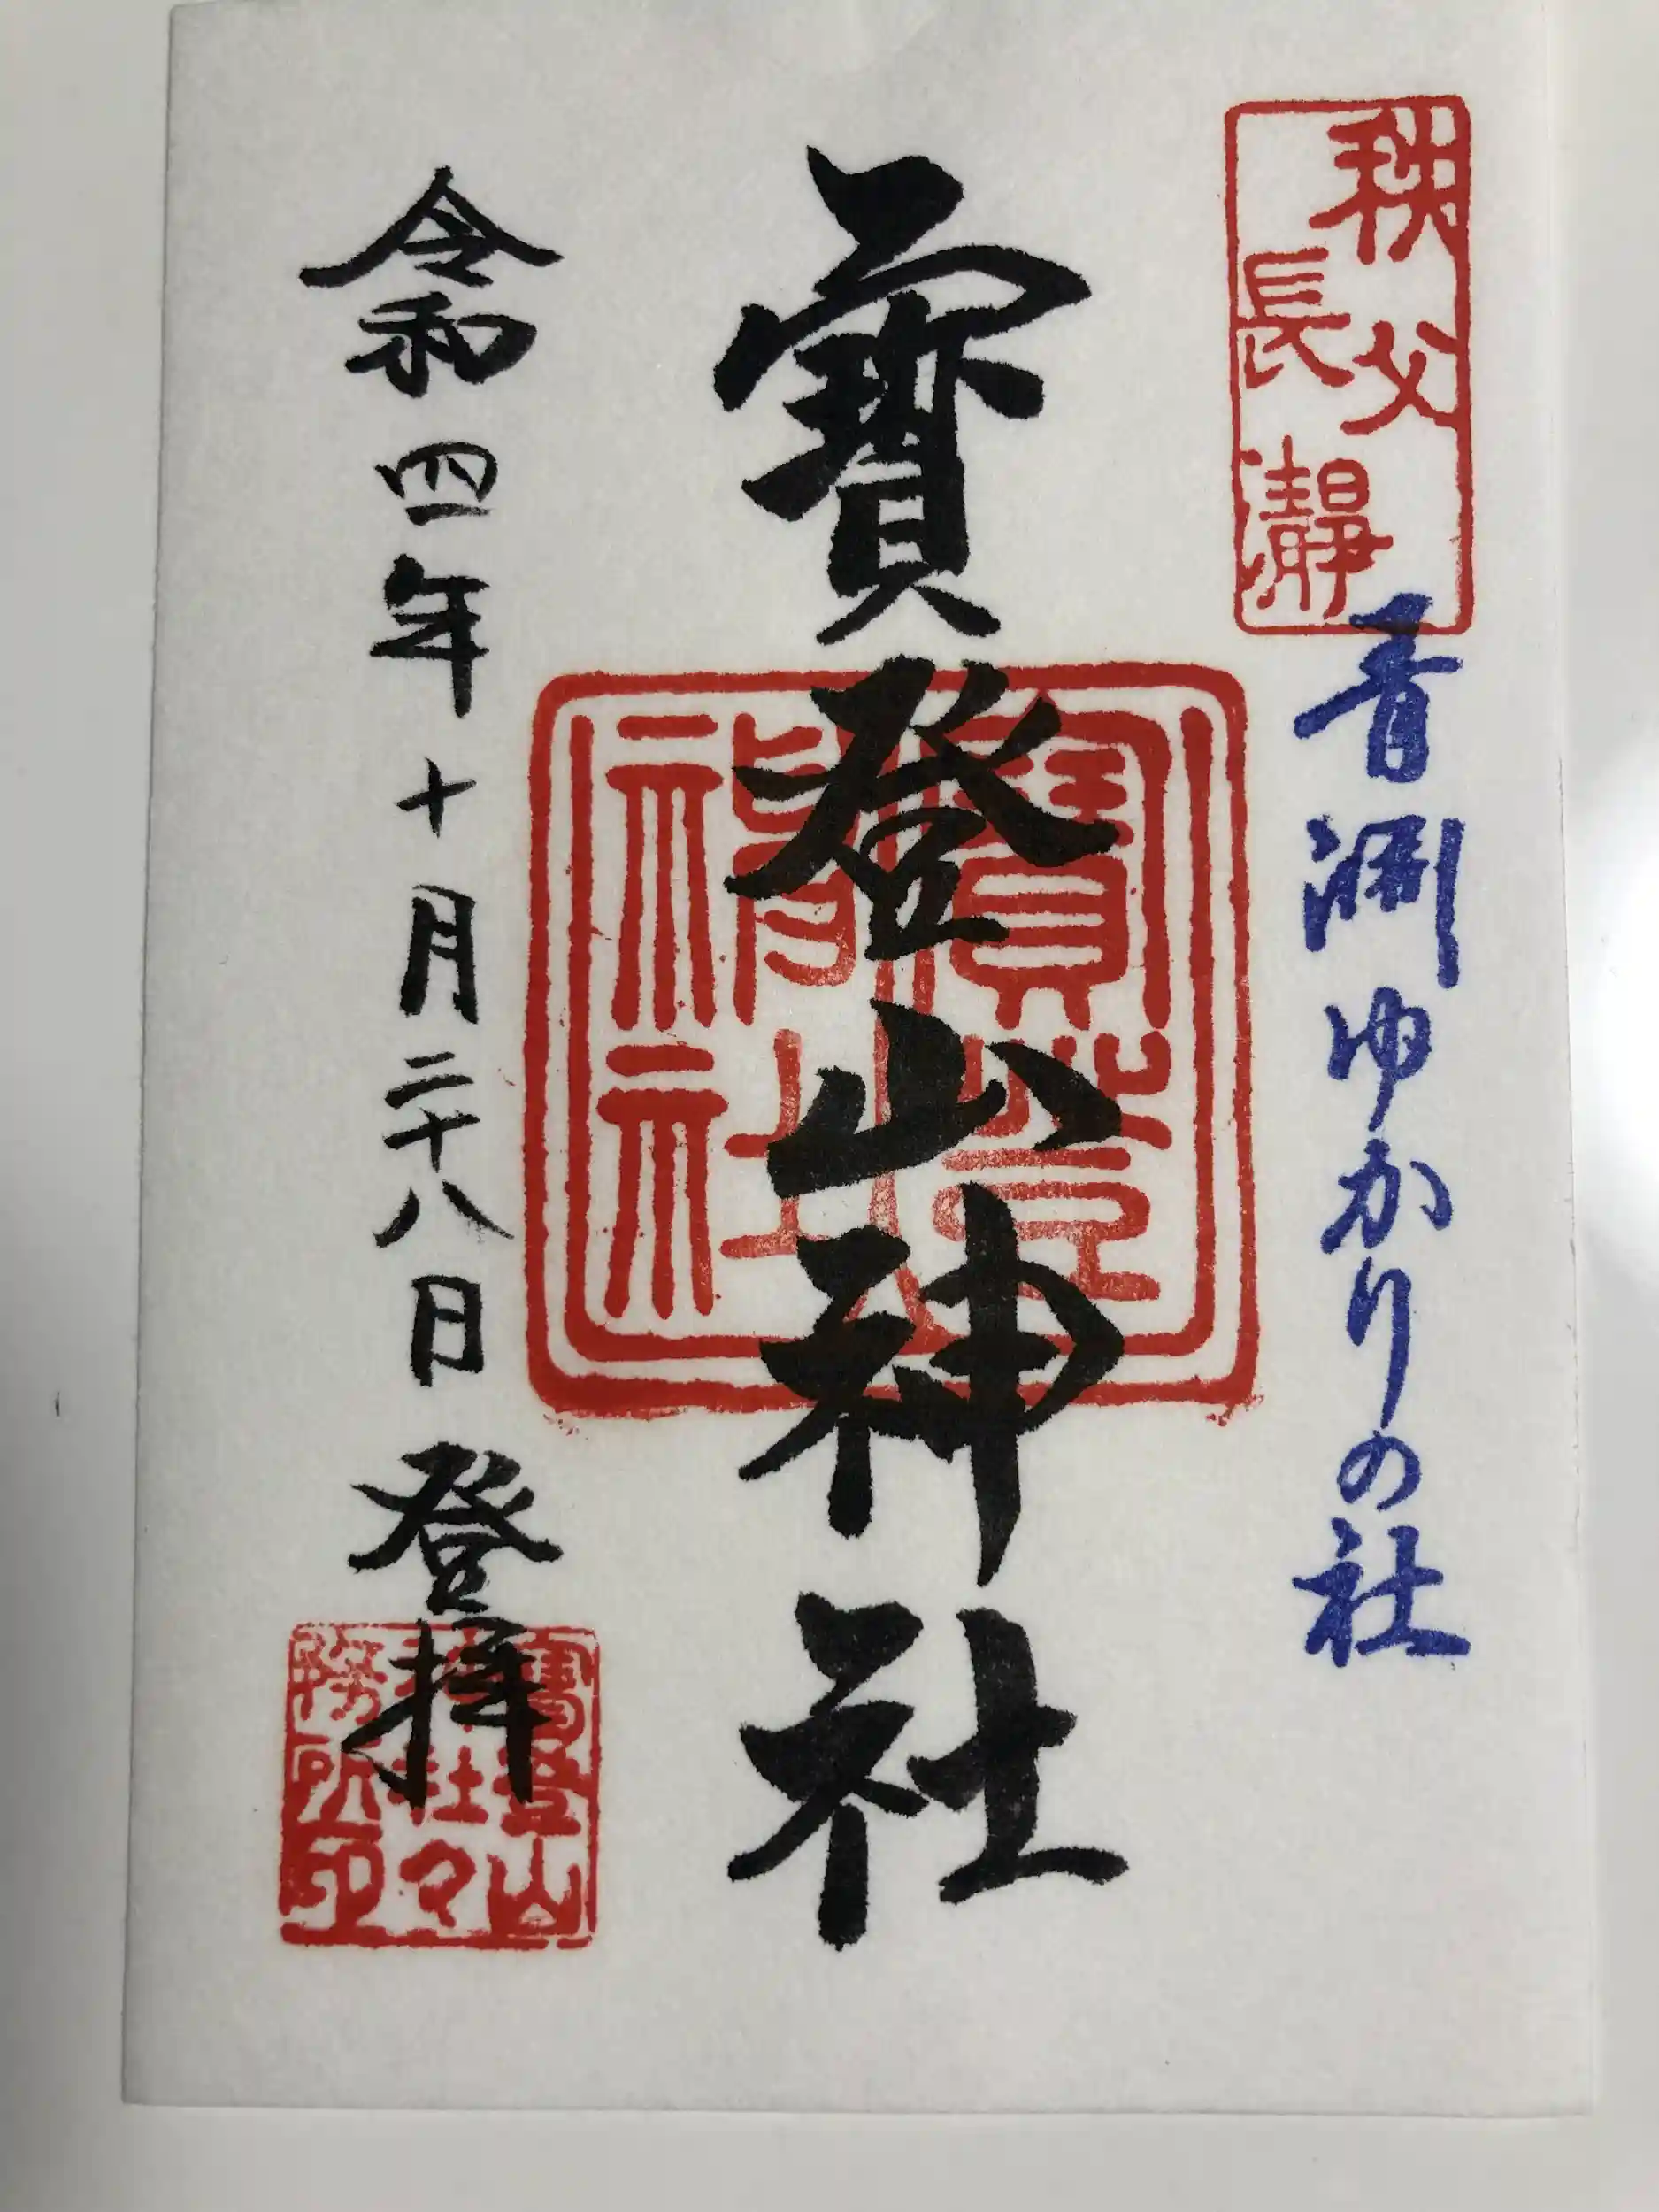 秩父
長瀞
青淵ゆかりの社
寶登山神社
寶登山
神社
令和四年十月二十八日 登拝
寶登山
神社々
務所印